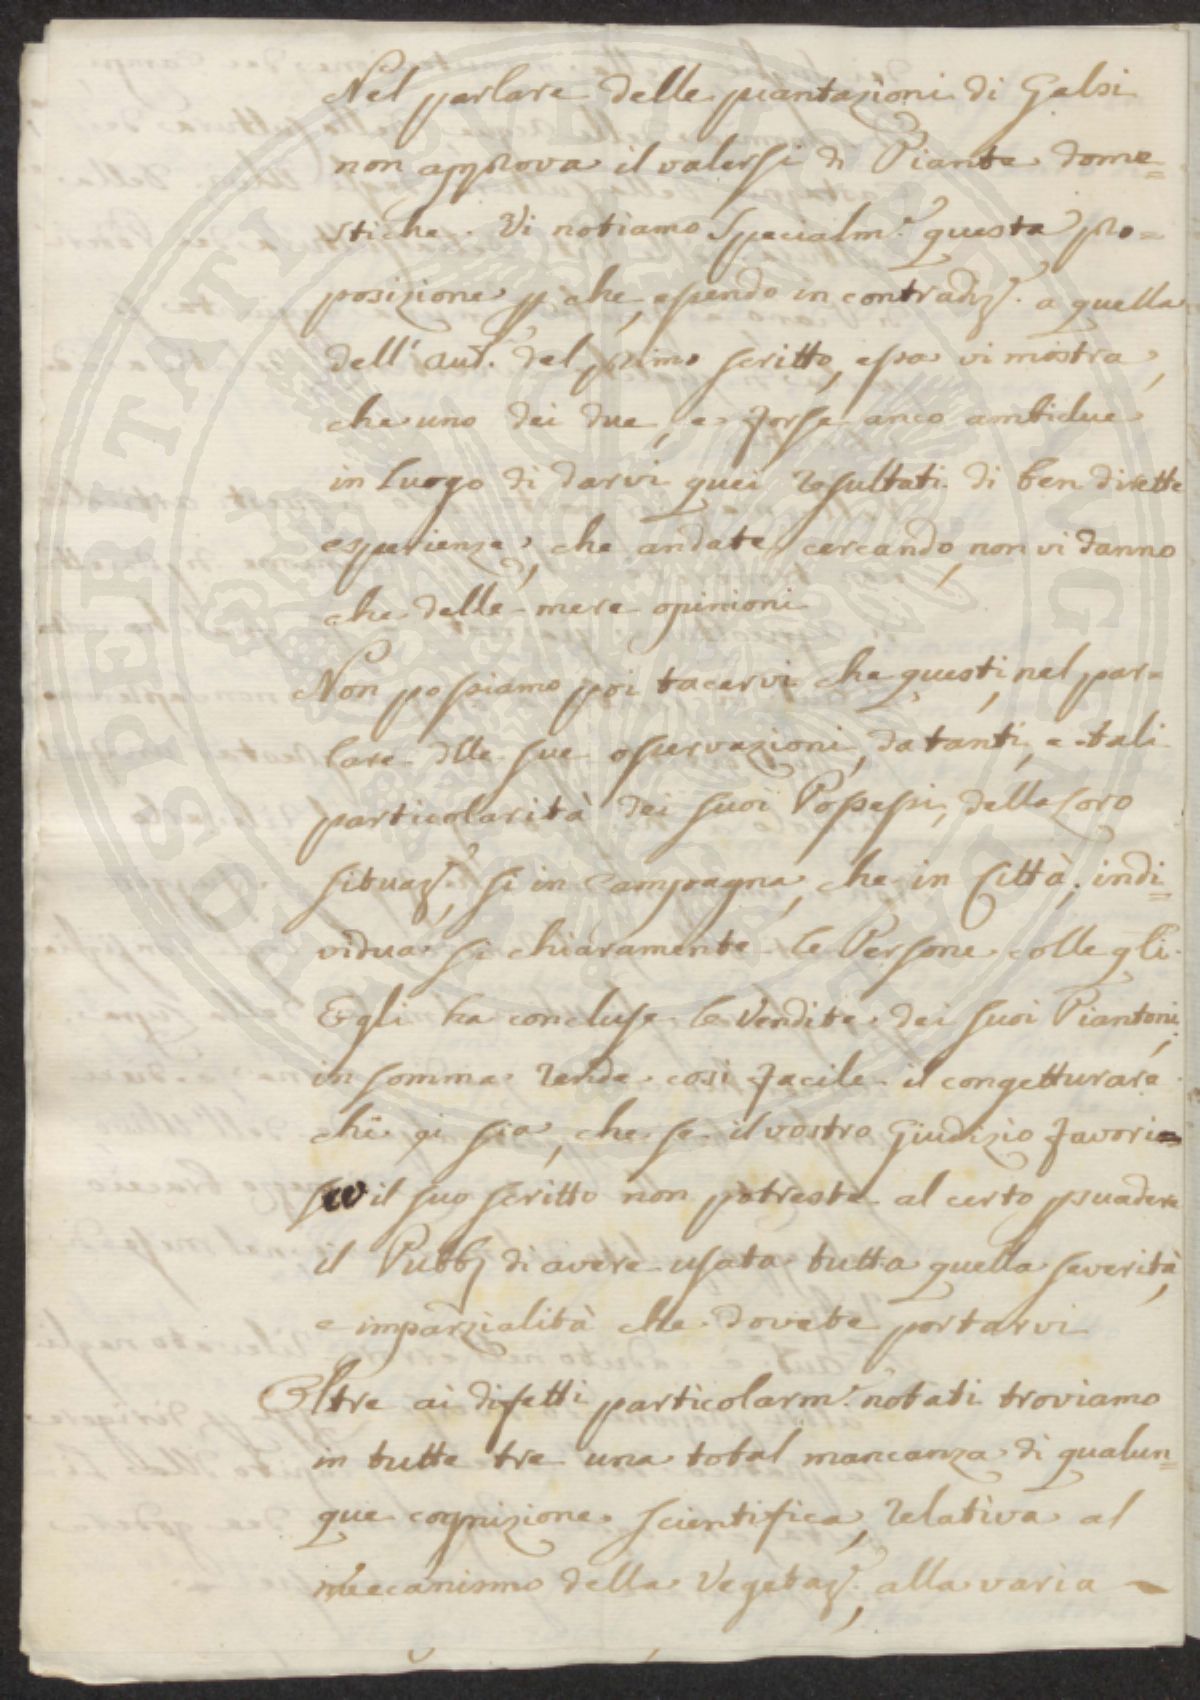 Nel parlare delle piantazioni di Gelsi
non approva il valersi di Piante dome=
stiche. Vi notiamo specialm.e questa pro=
posizione p che, essendo in contradiz.e a quella
dell'Aut.e del primo scritto, essa vi mostra,
che uno dei due, e forse anco ambidue
in luogo di darvi quei resultati di ben dirette
esperienze, che andate cercando, non vi danno
che delle mere opinioni
Non possiamo poi tacervi che questi, nel par=
lare dlle sue osservazioni, da tanti, e tali
particolarità dei suoi Possessi, della loro
situaz.e, sì in Campagna, che in Città, indi=
vidua sì chiaramente le Persone colle qli
Egli ha concluse le Vendite dei suoi Piantoni;
in somma rende così facile il congetturare
chi ei sia, che se il vostro Giudizio favoris=
se il suo scritto non potreste al certo psuadere
il Pubb. di avere usata tutta quella severità,
e imparzialità che dovete portarvi
Oltre ai difetti particolarm.e notati troviamo
in tutte tre una total mancanza di qualun=
que cognizione scientifica, relativa al
meccanismo della Vegetaz.e, alla varia
PROSPERITATI PUBLICAE AUGENDAE